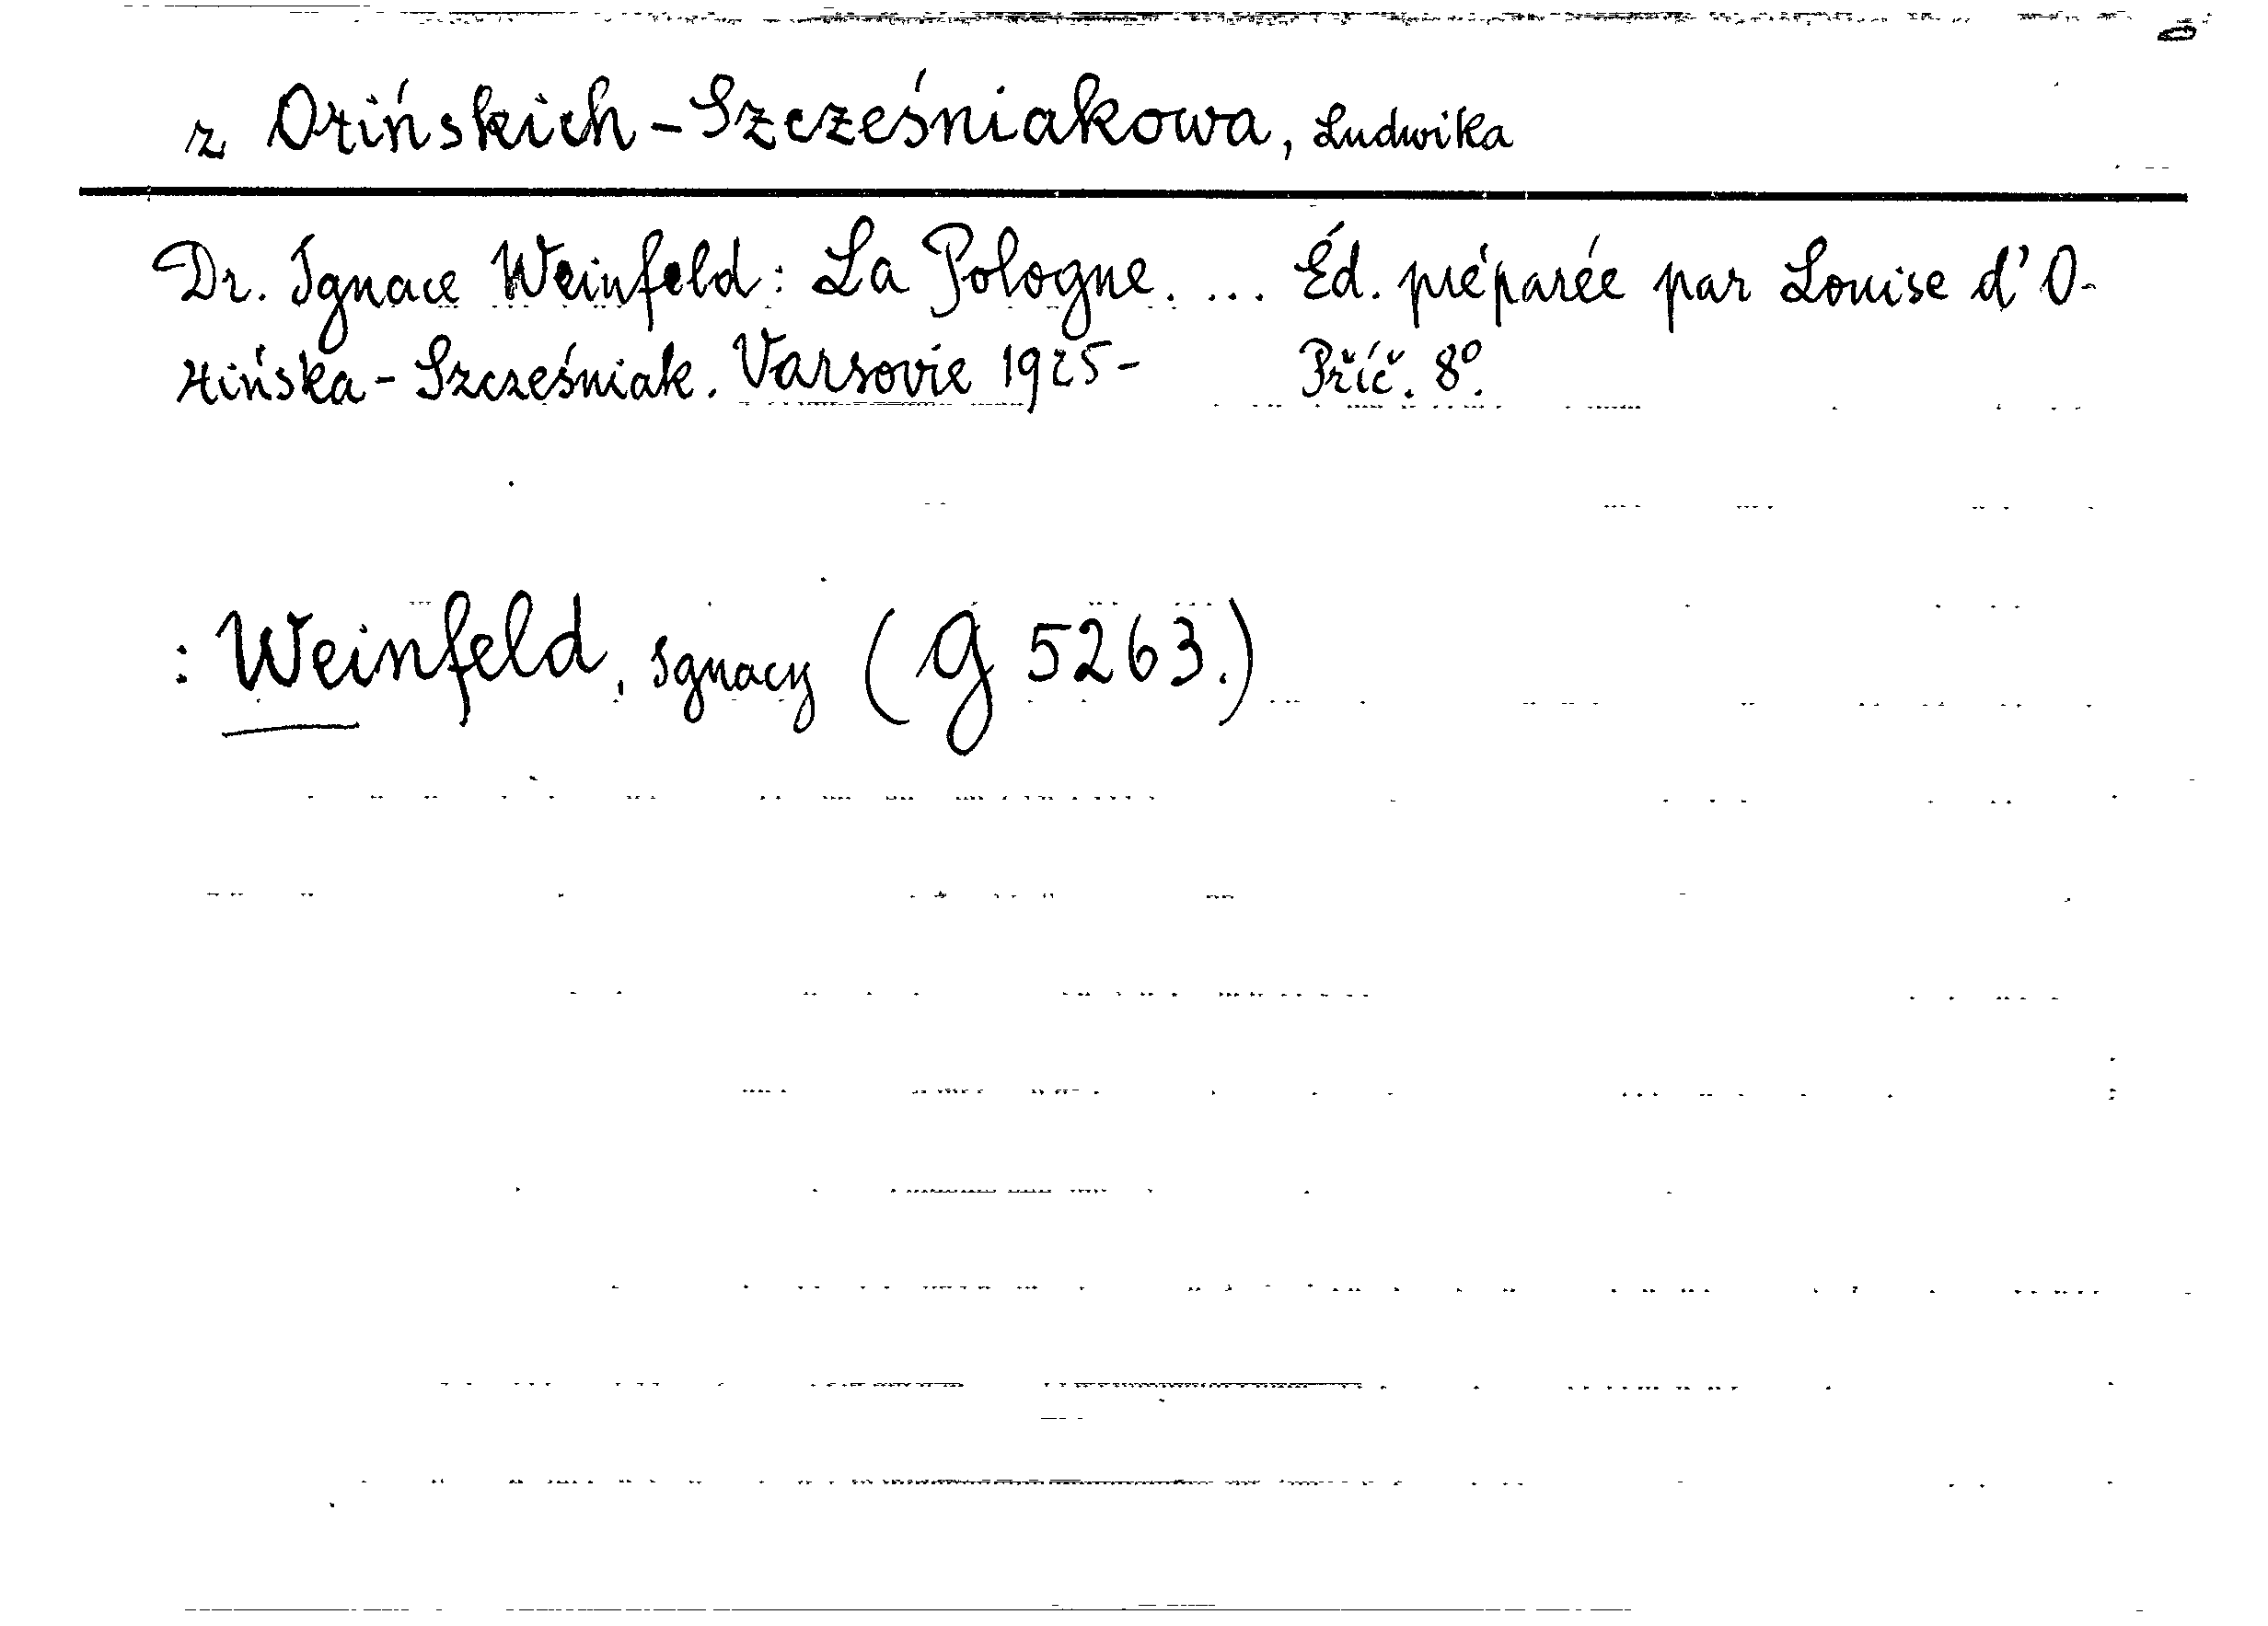 z Orińskich-Szcześniakowa, Ludwika
Dr. Ignace Weinfeld: La Pologne. ... Éd. préparée par Louise d'O-
rińska-Szcześniak. Varsovie 1925- Příč. 8°.
: Weinfeld, Ignacy (G 5263.)